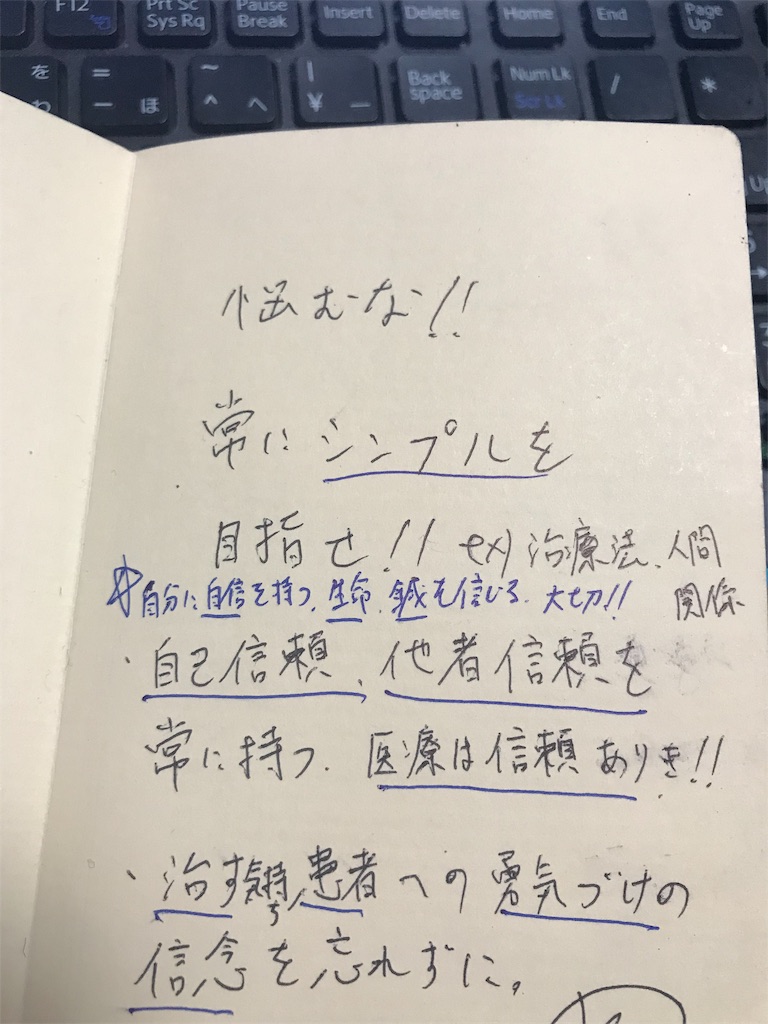 F12 Prt Sc Sys Rq Pause Break Insert Delete Home End Page Up
を わ = ー ほ ~ ^ へ | ¥ ー Back space Num Lk Scr Lk / *
悩むな!!
常にシンプルを
目指せ!! ex) 治療法、人間
関係
自分に自信を持つ、生命、鍼を信じる、大切!!
・自己信頼、他者信頼を
常に持つ、医療は信頼ありき!!
・治す気持ち、患者への勇気づけの
信念を忘れずに。